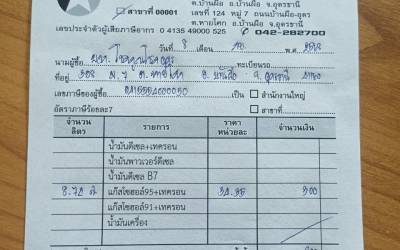 ต.บ้านผือ อ.บ้านผือ จ.อุดรธานี
สาขาที่ 00001 เลขที่ 124 หมู่ 7 ถนนบ้านผือ-อุดร
ต.หายโศก อ.บ้านผือ จ.อุดรธานี
เลขประจำตัวผู้เสียภาษีอากร 0 4135 49000 525 042-282700
วันที่ 8 เดือน พ.ศ.
นามผู้ซื้อ ทะเบียนรถ
ที่อยู่ 308 ม.7 อ.บ้านผือ จ.อุดรธานี
เลขภาษีของผู้ซื้อ เป็น สำนักงานใหญ่
อัตราภาษีร้อยละ7 สาขาที่
จำนวนลิตร รายการ ราคาหน่วยละ จำนวนเงิน
น้ำมันดีเซล+เทครอน
น้ำมันพาวเวอร์ดีเซล
น้ำมันดีเซล B7
8.72 ลิ แก๊สโซฮอล์95+เทครอน 34.35 300
แก๊สโซฮอล์91+เทครอน
น้ำมันเครื่อง